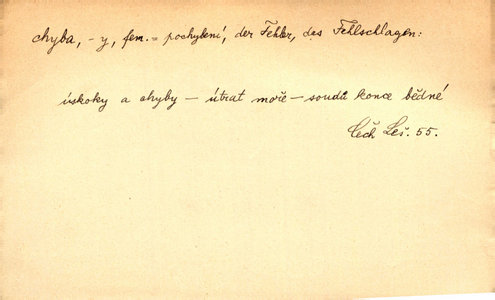 chyba, -y, fem. = pochybení, der Fehler, das Fehlschlagen:
úskoky a chyby – útrat moře – soudů konce bědné
Čech Leš. 55.